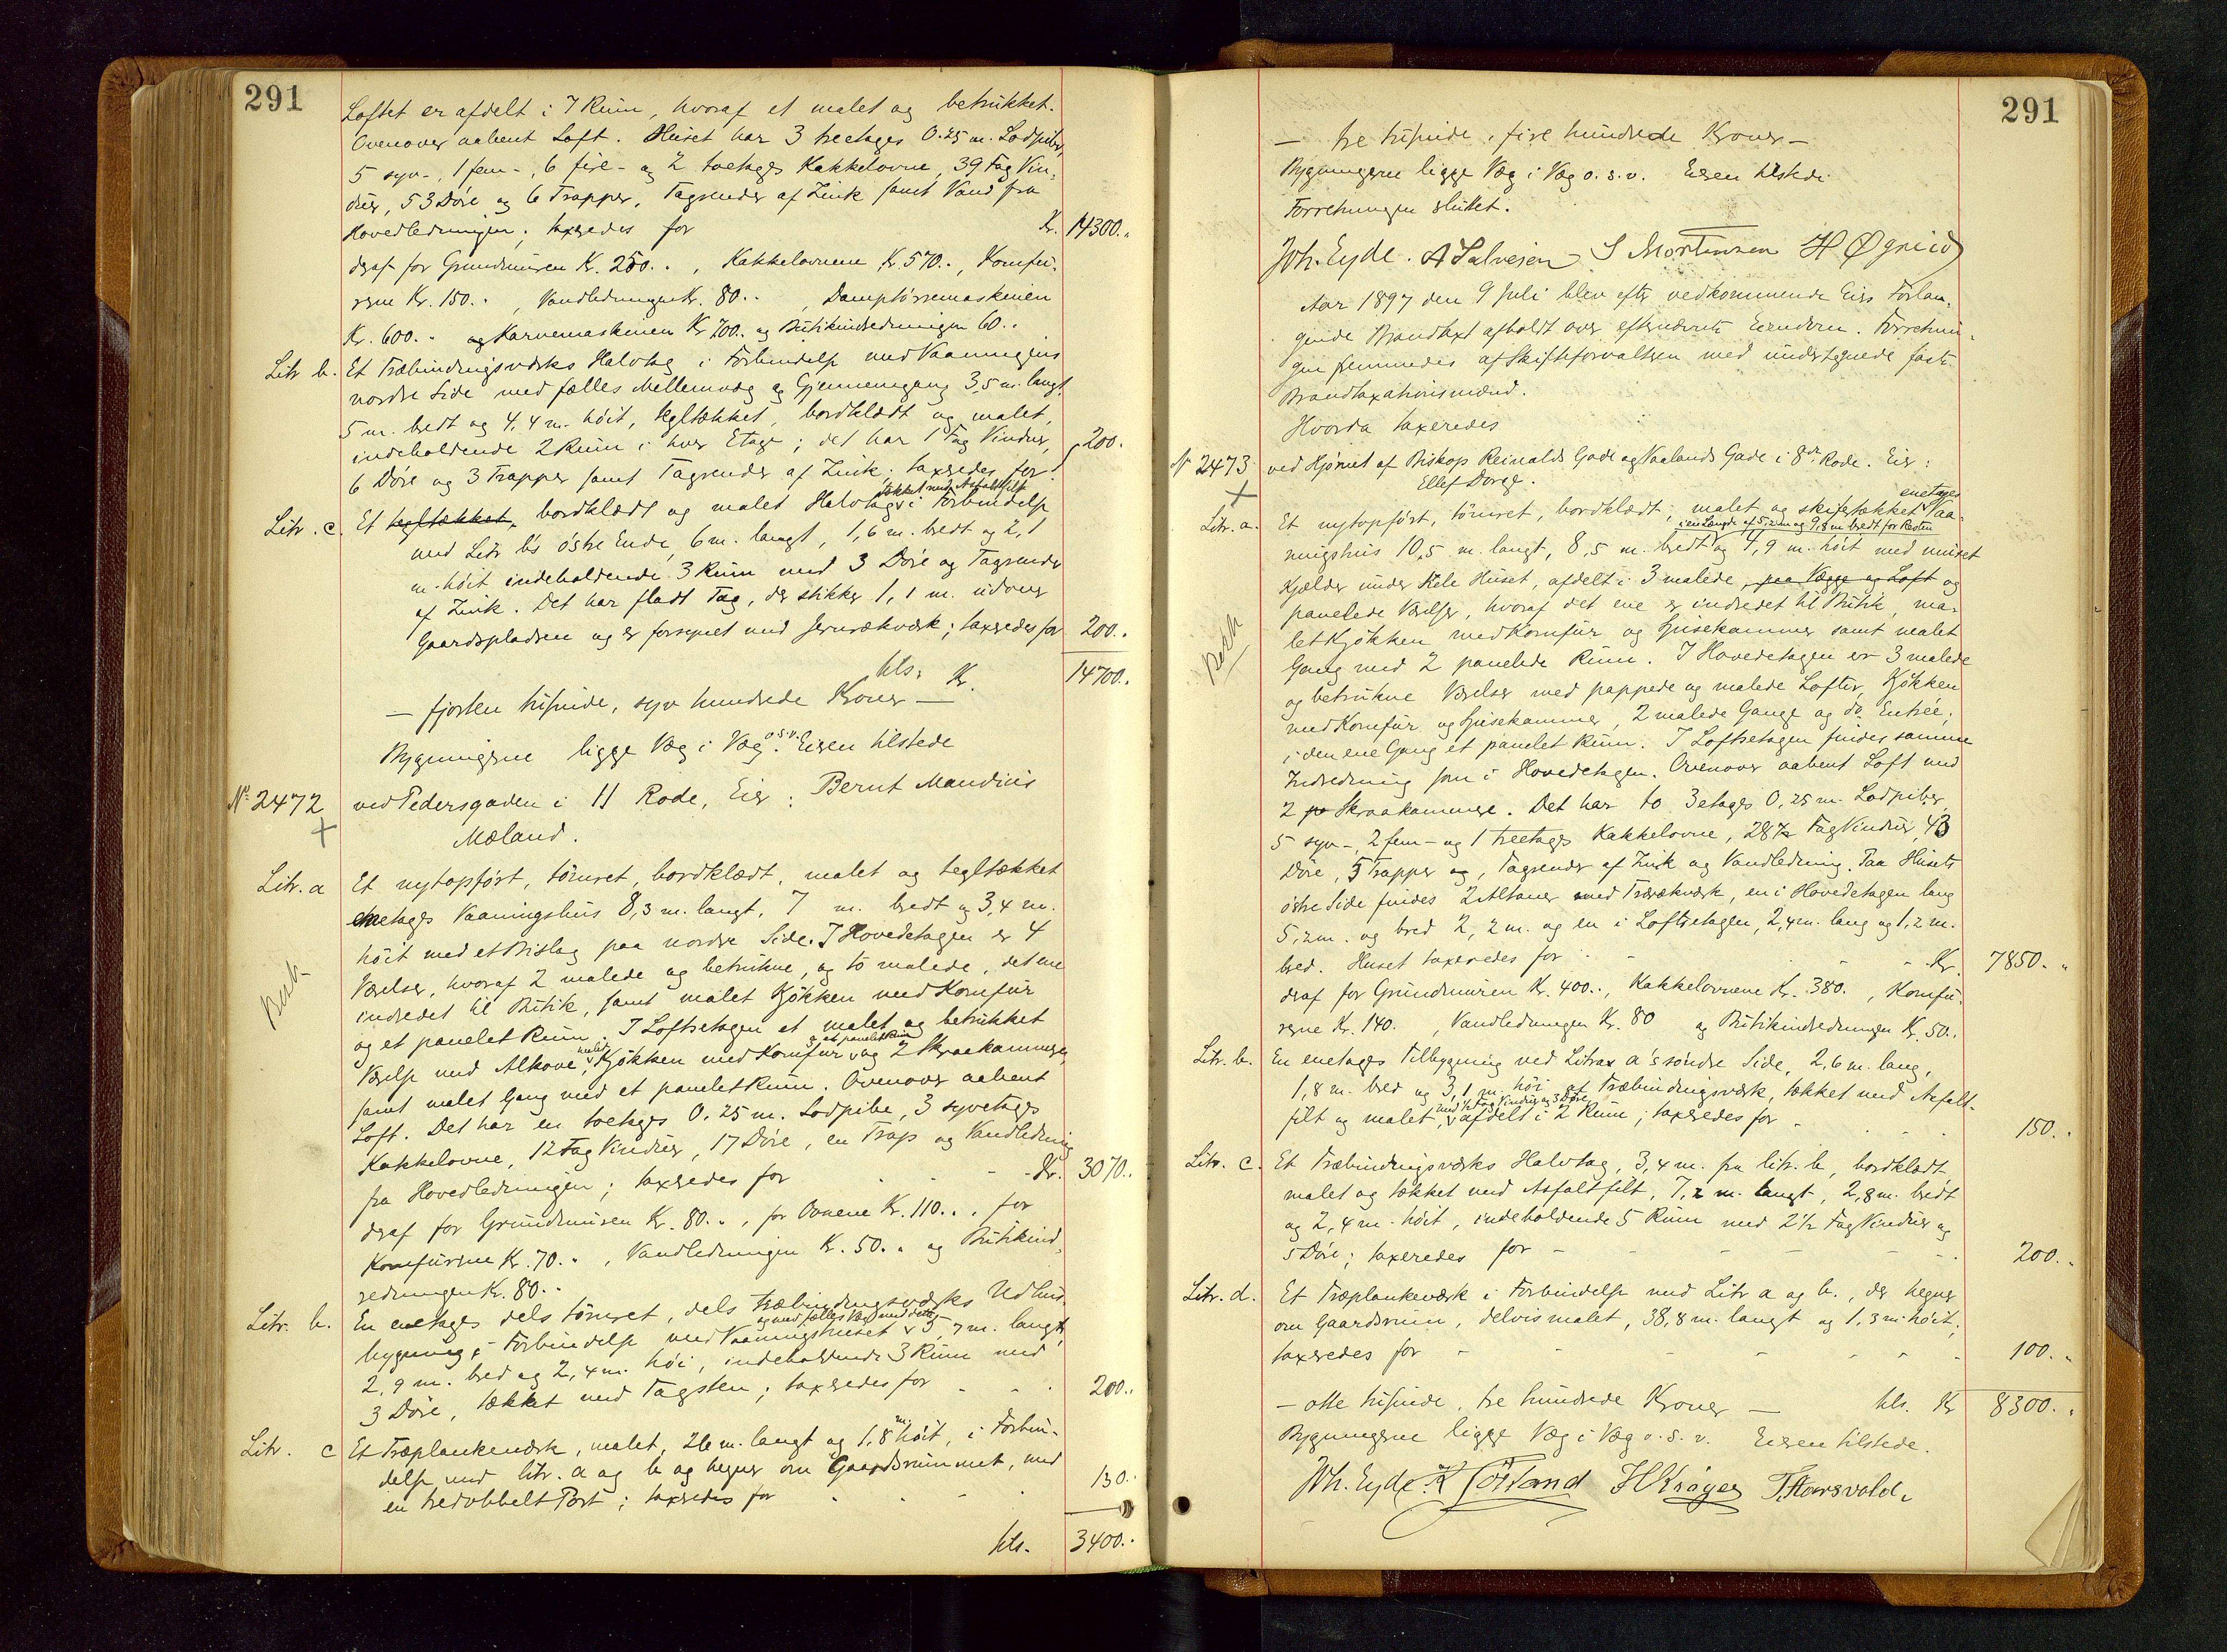 291
Loftet er afdelt i 7 Rum, hvoraf et malet og betrukket.
Ovenover aabent Loft. Huset har 3 treetages 0.25 m. Lodpiber,
5 syv-, 1 fem-, 6 fire- og 2 toetages Kakkelovne, 39 Fag Vin-
duer, 53 Døre og 6 Trapper, Tagrender af Zink samt Vand fra
Hovedledningen; taxeredes for Kr. 14300.„
deraf for Grundmuren Kr. 250.., Kakkelovnene Kr. 570.., Komfu-
rerne Kr. 150.., Vandledningen Kr. 80.., Damptørremaskinen
Kr. 600.. og Karnemaskinen Kr 700.. og Butikindredningen 60..
Litr b. Et Træbindingsværks Halvtag i Forbindelse med Vaaningens
nordre Side med fælles Mellemvæg og Gjennemgang 3,5 m. langt,
5 m. bredt og 4,4 m. høit, tegltækket, bordklædt og malet,
indeholdende 2 Rum i hver Etage; det har 1 Fag Vinduer,
6 Døre og 3 Trapper samt Tagrender af Zink; taxeredes for 200.
tækket med Asfaltfilt
Litr. c. Et tegltækket, bordklædt og malet Halvtag i Forbindelse
med Litr b's østre Ende, 6 m. langt, 1,6 m. bredt og 2,1
m. høit indeholdende 3 Rum med 3 Døre og Tagrender
af Zink. Det har fladt Tag, der stikker 1,1 m. udover
Gaardspladsen og er forsynet med Jernrækværk; taxeredes for 200..
tils. Kr. 14700..
— fjorten tusinde, syv hundrede Kroner —
Bygningerne ligge Væg i Væg o.s.v. Eieren tilstede
No 2472 ved Pedersgaden i 11 Rode, Eier: Bernt Mandius
Mæland.
Litr. a Et nytopført, tømret, bordklædt, malet og tegltækket
enetages Vaaningshus 8,3 m. langt, 7 m. bredt og 3,4 m.
høit med et Bislag paa nordre Side. I Hovedetagen er 4
Værelser, hvoraf 2 malede og betrukne, og to malede, det ene
indredet til Butik, samt malet Kjøkken med Komfur
og et panelet Rum. I Loftsetagen et malet og betrukket
malet og et panelet Rum
Værelse med Alkove, Kjøkken med Komfur og 2 Skraakammere,
samt malet Gang med et panelet Rum. Ovenover aabent
Loft. Det har en toetages 0.25 m. Lodpibe, 3 syvetages
Kakkelovne, 12 Fag Vinduer, 17 Døre, en Trap og Vandledning
fra Hovedledningen; taxeredes for Kr. 3070..
deraf for Grundmuren Kr. 80.., for Ovnene Kr. 110.., for
Komfurerne Kr. 70.., Vandledningen Kr. 50.. og Butikind-
redningen Kr. 80..
Litr. b. En enetages dels tømret, dels træbindingsværks Udhus-
og med fælles Væg med dette
bygning i Forbindelse med Vaaningshuset 5,7 m. langt,
2,9 m. bred og 2,4 m. høi, indeholdende 3 Rum med
3 Døre, tækket med Tagsten; taxeredes for 200..
Litr. c Et Træplankeværk, malet, 26 m. langt og 1,8 m. høit, i Forbin-
delse med litr. a og b og hegner om Gaardsrummet, med
en tredobbelt Port; taxeredes for 130..
tils. 3400..
Besk
291
— tre tusinde, fire hundrede Kroner —
Bygningerne ligge Væg i Væg o.s.v. Eieren tilstede.
Forretningen sluttet.
Joh. Eyde. A Salvesen S Mortensen H Øgreid
Aar 1897 den 9 Juli blev efter vedkommende Eiers Forlan-
gende Brandtaxt afholdt over efternævnte Eiendom. Forretnin-
gen fremmedes af Skifteforvalteren med undertegnede faste
Brandtaxationsmænd.
Hvorda taxeredes
No 2473 ved Hjørnet af Biskop Reinalds Gade og Vaalands Gade i 8de Rode. Eier:
Ellef Doreg.
enetages
Litr. a. Et nytopført, tømret, bordklædt, malet og skifertækket Vaa-
i en Længde af 5,2 m og 9,8 m bredt for Resten
ningshus 10,5 m. langt, 8,5 m. bredt og 4,9 m. høit med muret
Kjælder under hele Huset, afdelt i 3 malede, paa Vægge og Loft og
panelede Værelser, hvoraf det ene er indredet til Butik, ma-
let Kjøkken med Komfur og Spisekammer samt malet
Gang med 2 panelede Rum. I Hovedetagen er 3 malede
og betrukne Værelser med pappede og malede Lofter, Kjøkken
med Komfur og Spisekammer, 2 malede Gange og do. Entrée;
i den ene Gang et panelet Rum. I Loftsetagen findes samme
Indredning som i Hovedetagen. Ovenover aabent Loft med
2 Skraakammere. Det har to 3etages 0,25 m. Lodpiber,
5 syv-, 2 fem- og 1 treetages Kakkelovne, 28½ Fag Vinduer, 43
Døre, 5 Trapper og, Tagrender af Zink og Vandledning. Paa Husets
østre Side findes 2 Altaner med Trærækværk, en i Hovedetagen lang
5,2 m. og bred 2,2 m. og en i Loftsetagen, 2,4 m. lang og 1,2 m.
bred. Huset taxeredes for Kr. 7850.„
deraf for Grundmuren Kr. 400.., Kakkelovnene Kr. 380., Komfu-
rerne Kr. 140., Vandledningen Kr. 80 og Butikindredningen Kr. 50..
Litr. b. En enetages Tilbygning ved Litra a's søndre Side, 2,6 m. lang,
1,8 m. bred og 3,1 m. høi af Træbindingsværk, tækket med Asfalt-
med ½ Fag Vinduer og 3 Døre,
filt og malet, afdelt i 2 Rum; taxeredes for 150..
Litr. c. Et Træbindingsværks Halvtag, 3,4 m. fra litr. b, bordklædt,
malet og tækket med Asfaltfilt, 7,2 m. langt, 2,8 m. bredt
og 2,4 m. høit, indeholdende 5 Rum med 2½ Fag Vinduer og
5 Døre; taxeredes for 200..
Litr. d. Et Træplankeværk i Forbindelse med Litr a og b., der hegner
om Gaardsrum, delvis malet, 38,8 m. langt og 1,3 m. høit;
taxeredes for 100.„
— otte tusinde, tre hundrede Kroner — tils. Kr 8300.„
Bygningerne ligge Væg i Væg o.s.v. Eieren tilstede.
Joh. Eyde. H Krøger T. Haarsvold.
Besk